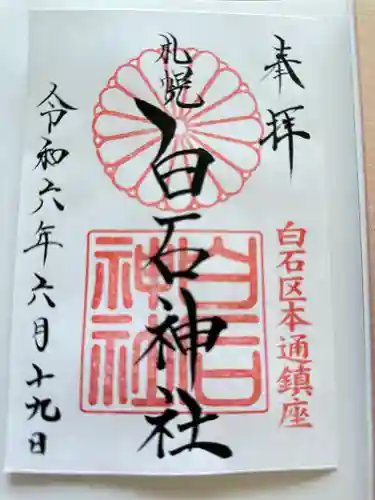 奉拝
白石区本通鎮座
札幌
白石神社
白石神社
令和六年六月十九日